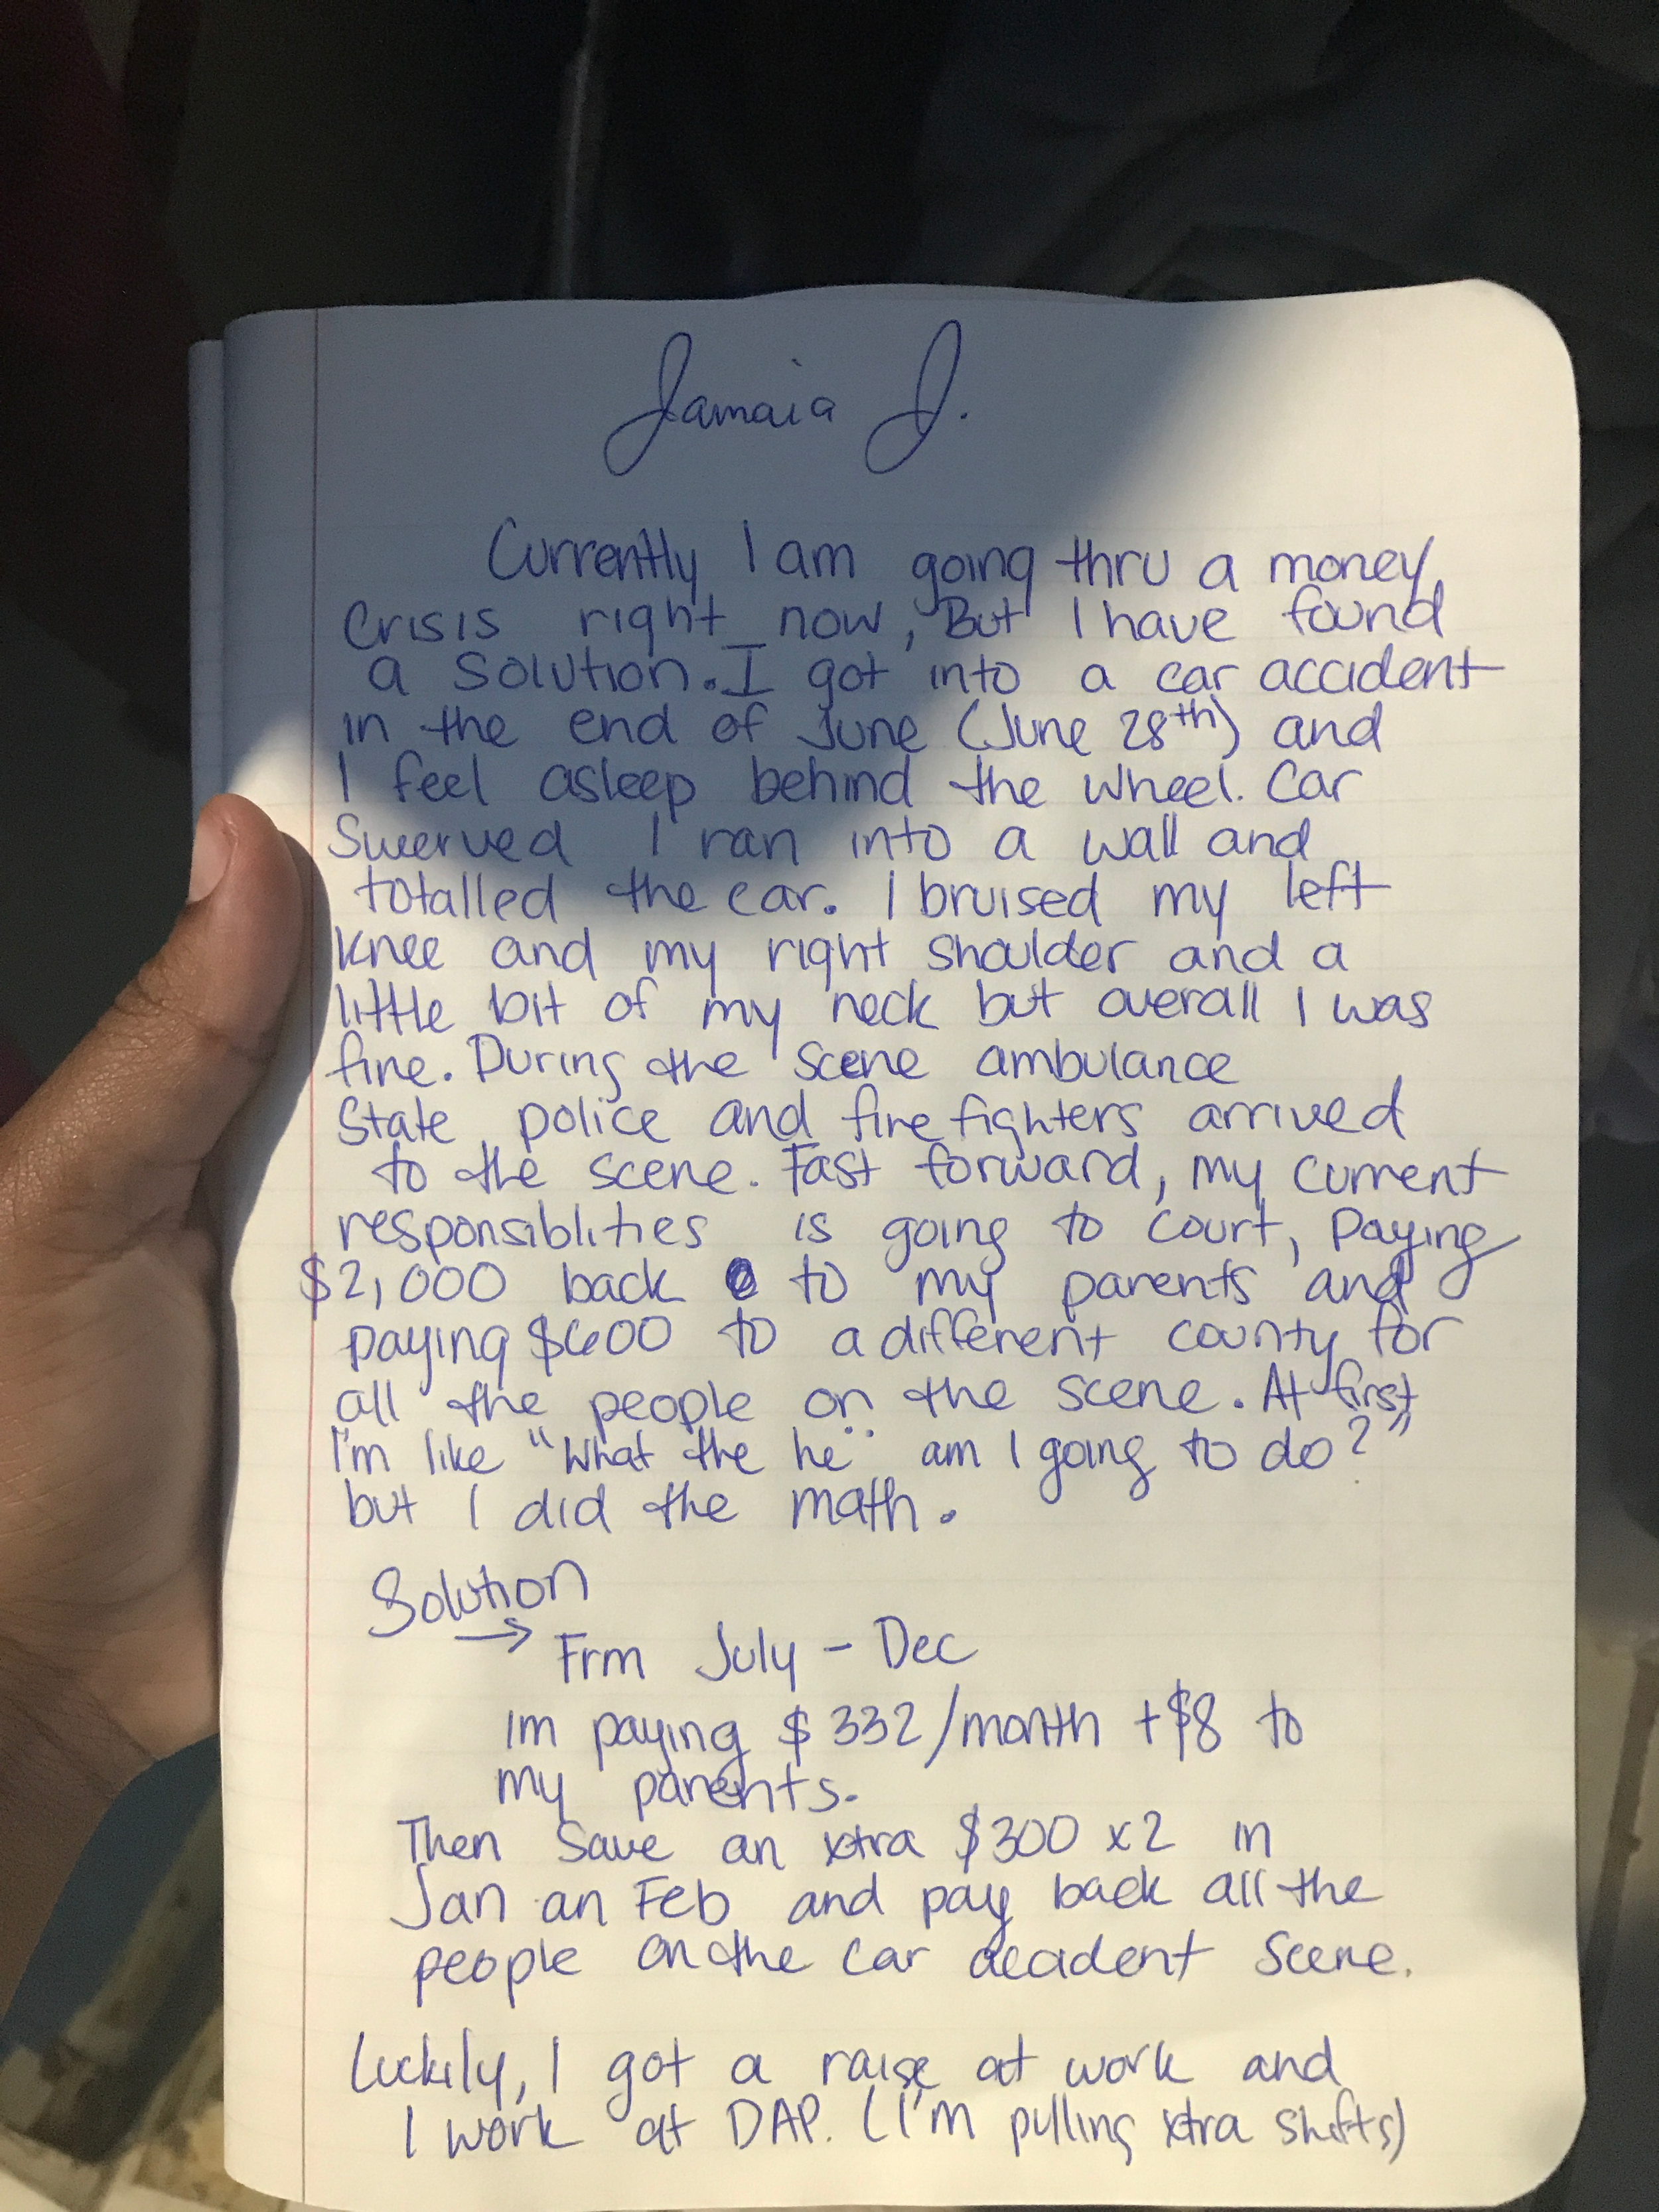 Jamaia J.
Currently I am going thru a money
crisis right now, But I have found
a solution. I got into a car accident
in the end of June (June 28th) and
I feel asleep behind the wheel. Car
Swerved I ran into a wall and
totalled the car. I bruised my left
knee and my right shoulder and a
little bit of my neck but overall I was
fine. During the scene ambulance
State police and fire fighters arrived
to the scene. Fast forward, my current
responsiblities is going to court, Paying
$2,000 back to my parents and
paying $600 to a different county for
all the people on the scene. At first
I'm like "What the he·· am I going to do?"
but I did the math.
Solution
→ Frm July - Dec
Im paying $332/month + $8 to
my parents.
Then Save an xtra $300 x2 in
Jan an Feb and pay back all the
people on the car accident scene.
Luckily, I got a raise at work and
I work at DAP. (I'm pulling xtra shifts)